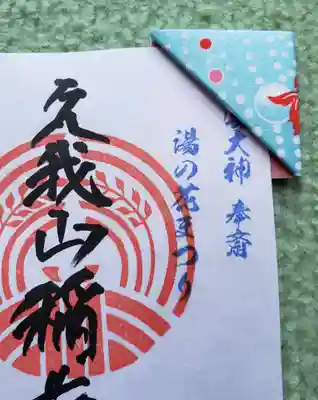 大神 奉斎
湯の花まつり
久我山稲